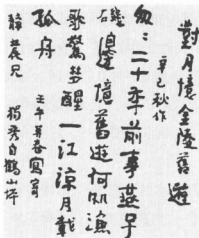 對月憶金陵舊遊
辛巳秋作
匆〻二十年前事燕子
磯邊憶舊遊何処漁
歌驚夢醒一江涼月載
孤舟 壬午暮春寫寄
靜農兄 獨秀自鶴山坪